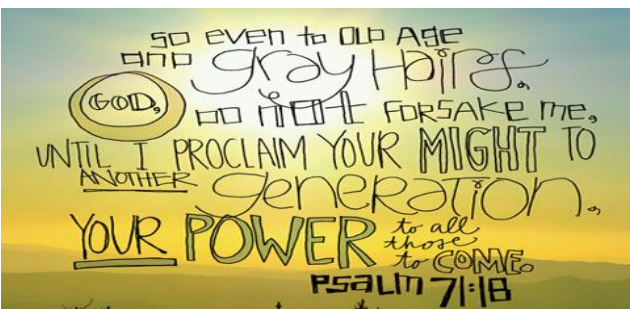 so even to OLD Age
and gray Hairs,
GOD, DO NOt FORSAKE me,
UNTIL I PROCLAIM YOUR MIGHT TO
ANOTHER generation,
YOUR POWER to all
those
to COME.
PSaLm 71:18